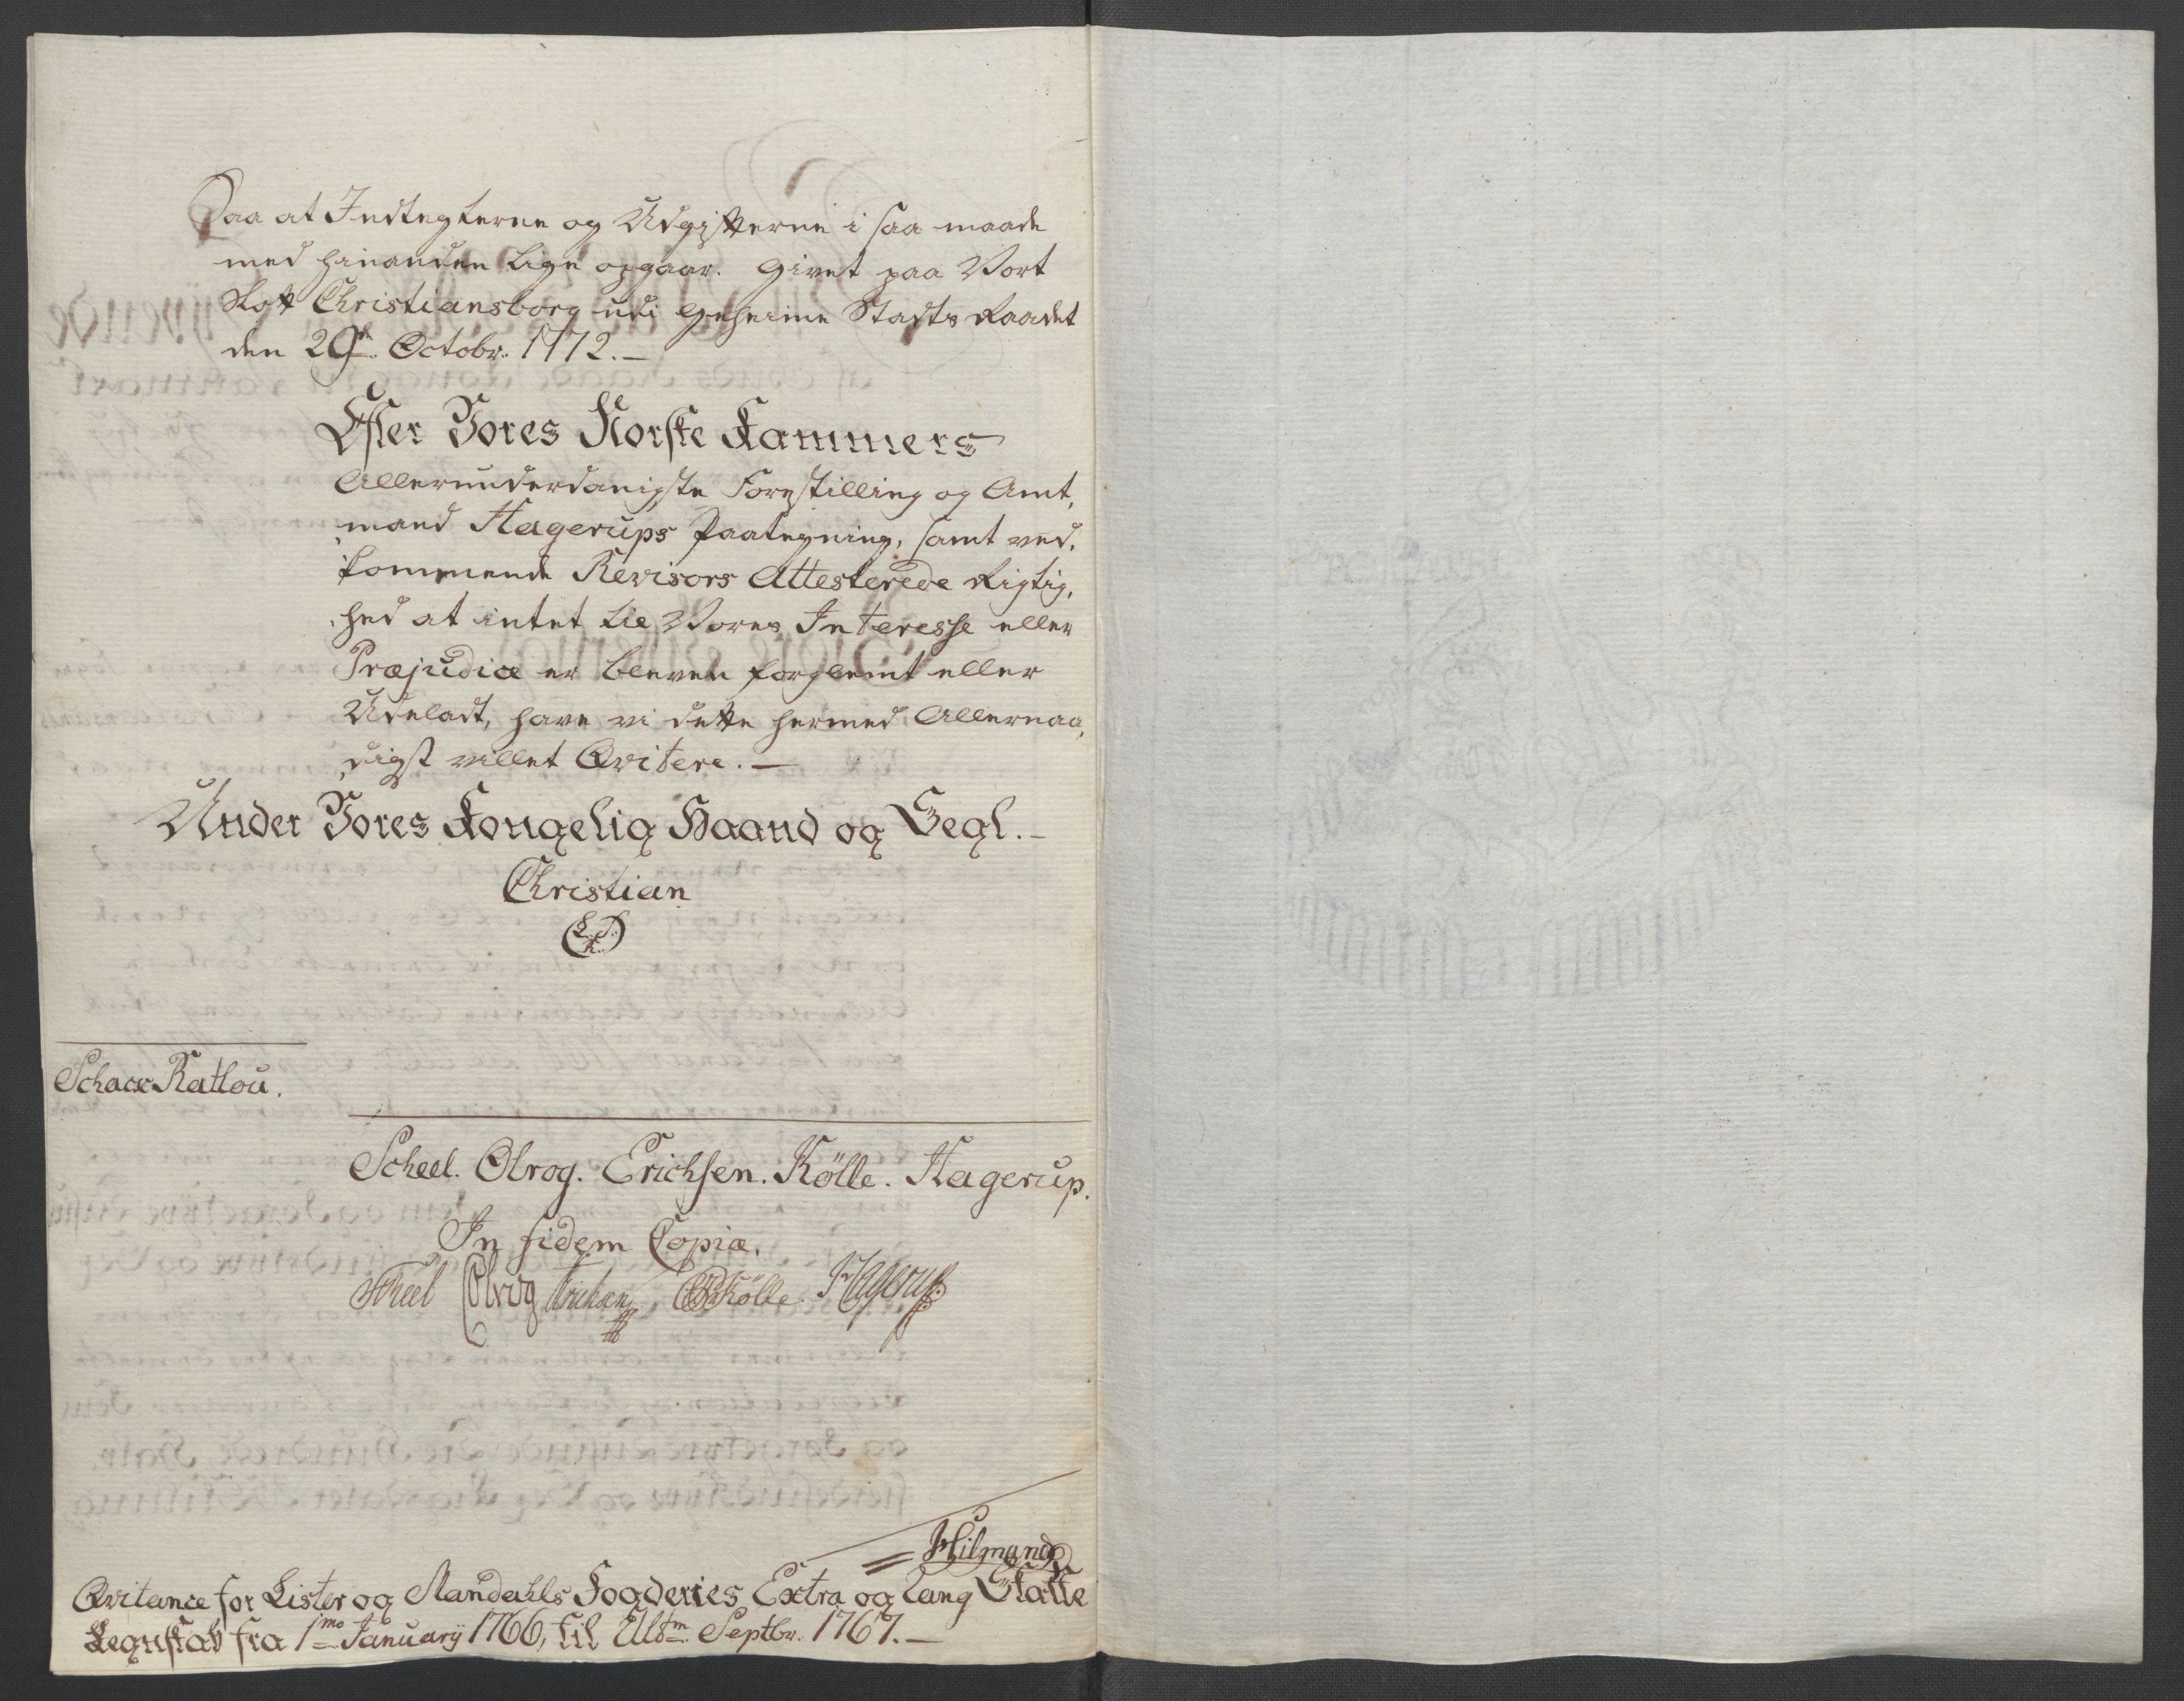 Saa at Indtegterne og Udgifterne i saa maade
med hinanden lige opgaar. Givet paa Vort
Slott Christiansborg udi Geheime Stadts Raadet
den 29de Octobr. 1772.
Efter Vores Norske Kammers
Allerunderdanigste Forestilling og Amt,
mand Hagerups Paategning, samt ved,
kommende Revisors Attesterede Rigtig,
hed at intet til Vores Interesse eller
Præjudice er bleven forglemt eller
Udeladt, have vi dette hermed Allernaa,
digst villet Qvitere.
Under Vores Kongelig Haand og Segl.
Christian
(L.S.)
Schack Ratlou.
Scheel. Olrog. Erichsen. Kölle. Hagerup.
In fidem Copiæ.
Scheel Olrog Erichsen Kölle. Hagerup.
Hilmand
Qvitance for Lister og Mandahls Fogderies Extra og Tang Skatte
Regnskab fra 1mo Januarij 1766, til Ultm Septbr. 1767.